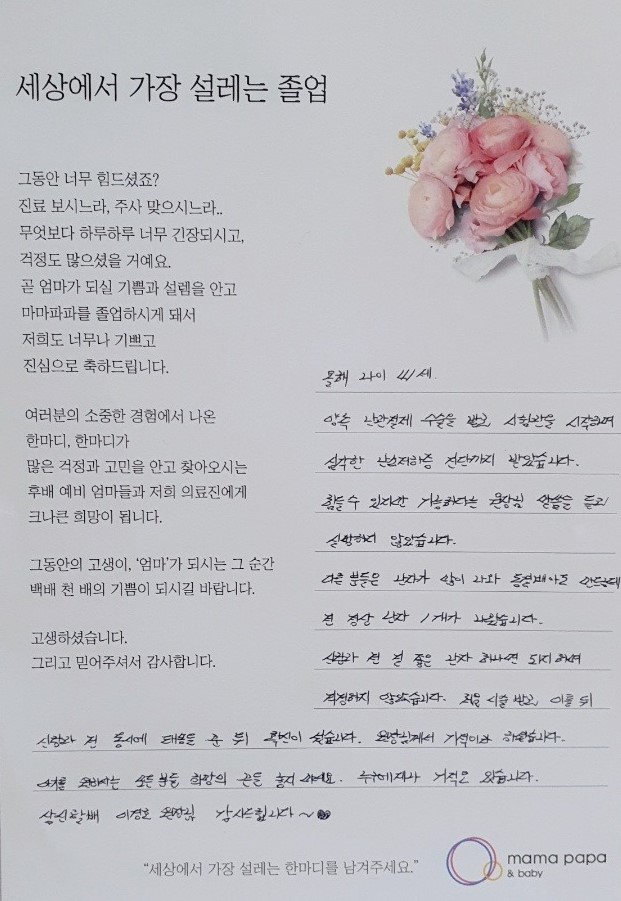 세상에서 가장 설레는 졸업
그동안 너무 힘드셨죠?
진료 보시느라, 주사 맞으시느라..
무엇보다 하루하루 너무 긴장되시고,
걱정도 많으셨을 거예요.
곧 엄마가 되실 기쁨과 설렘을 안고
마마파파를 졸업하시게 돼서
저희도 너무나 기쁘고
진심으로 축하드립니다.
여러분의 소중한 경험에서 나온
한마디, 한마디가
많은 걱정과 고민을 안고 찾아오시는
후배 예비 엄마들과 저희 의료진에게
크나큰 희망이 됩니다.
그동안의 고생이, '엄마'가 되시는 그 순간
백배 천 배의 기쁨이 되시길 바랍니다.
고생하셨습니다.
그리고 믿어주셔서 감사합니다.
올해 나이 44세.
양측 난관절제 수술을 받고 시험관을 시작하며
심각한 난소저하증 진단까지 받았습니다.
힘들 수 있지만 가능하다는 원장님 말씀을 듣고
실망하지 않았습니다.
다른 분들은 난자가 많이 나와 동결배아도 만드는데
전 정상 난자 1개가 나왔습니다.
신랑과 전 질 좋은 난자 하나면 되지하며
걱정하지 않았습니다. 처음 시술 받고, 이틀 뒤
신랑과 전 동시에 태몽을 꾼 뒤 확신이 섰습니다. 원장님께서 기적이라 하셨습니다.
아기를 원하시는 모든 분들 희망의 끈을 놓지 마세요. 누구에게나 기적은 있습니다.
이경호 원장님 감사드립니다~
"세상에서 가장 설레는 한마디를 남겨주세요."
mama papa
& baby